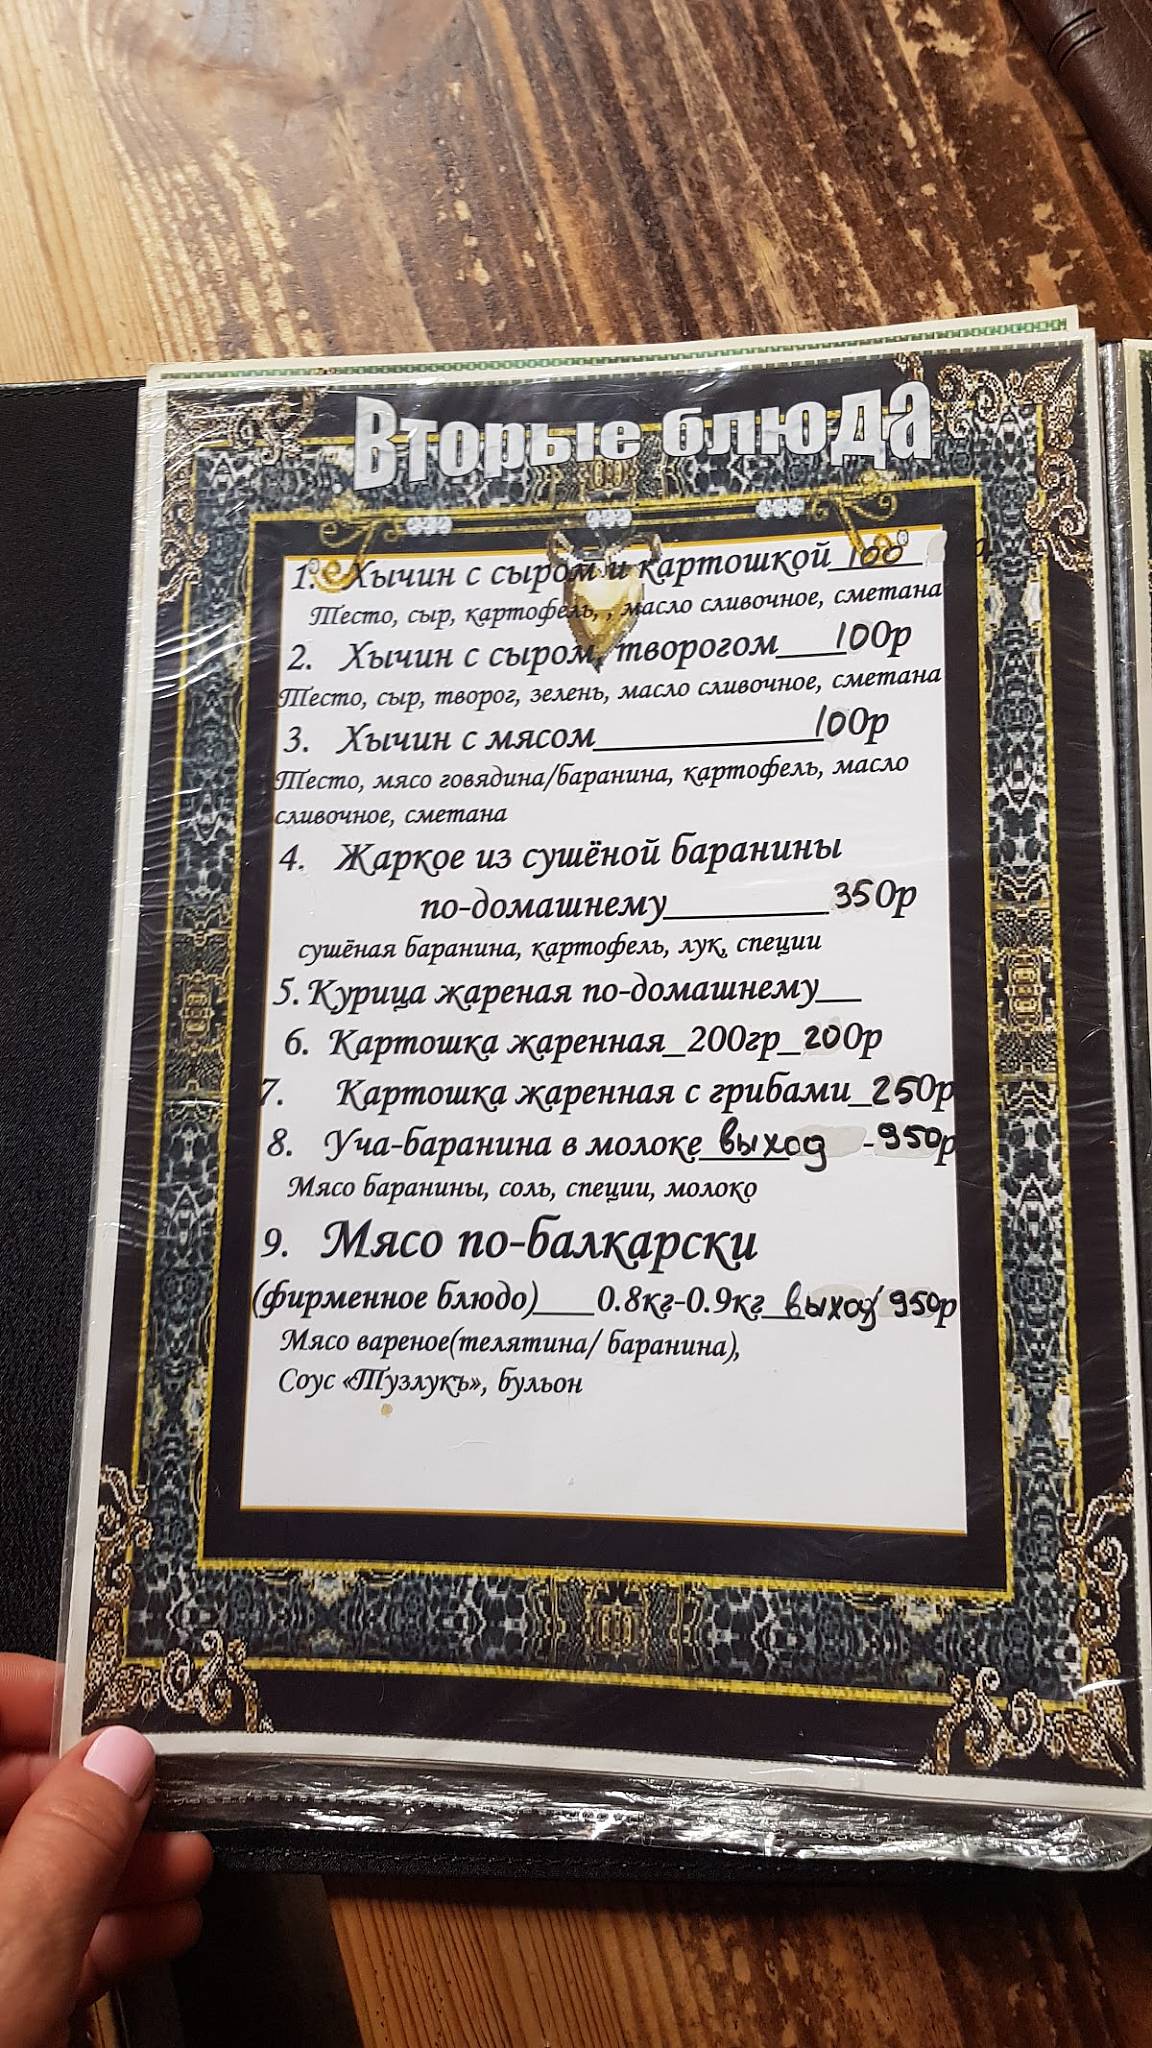 Вторые блюда
1. Хычин с сыром и картошкой_100
Тесто, сыр, картофель, , масло сливочное, сметана
2. Хычин с сыром, творогом____100р
Тесто, сыр, творог, зелень, масло сливочное, сметана
3. Хычин с мясом____________100р
Тесто, мясо говядина/баранина, картофель, масло
сливочное, сметана
4. Жаркое из сушёной баранины
по-домашнему_________350р
сушёная баранина, картофель, лук, специи
5. Курица жареная по-домашнему__
6. Картошка жаренная_200гр_200р
7. Картошка жаренная с грибами_250р
8. Уча-баранина в молоке____выход -950р
Мясо баранины, соль, специи, молоко
9. Мясо по-балкарски
(фирменное блюдо)___0.8кг-0.9кг__выход 950р
Мясо вареное(телятина/ баранина),
Соус «Тузлукъ», бульон